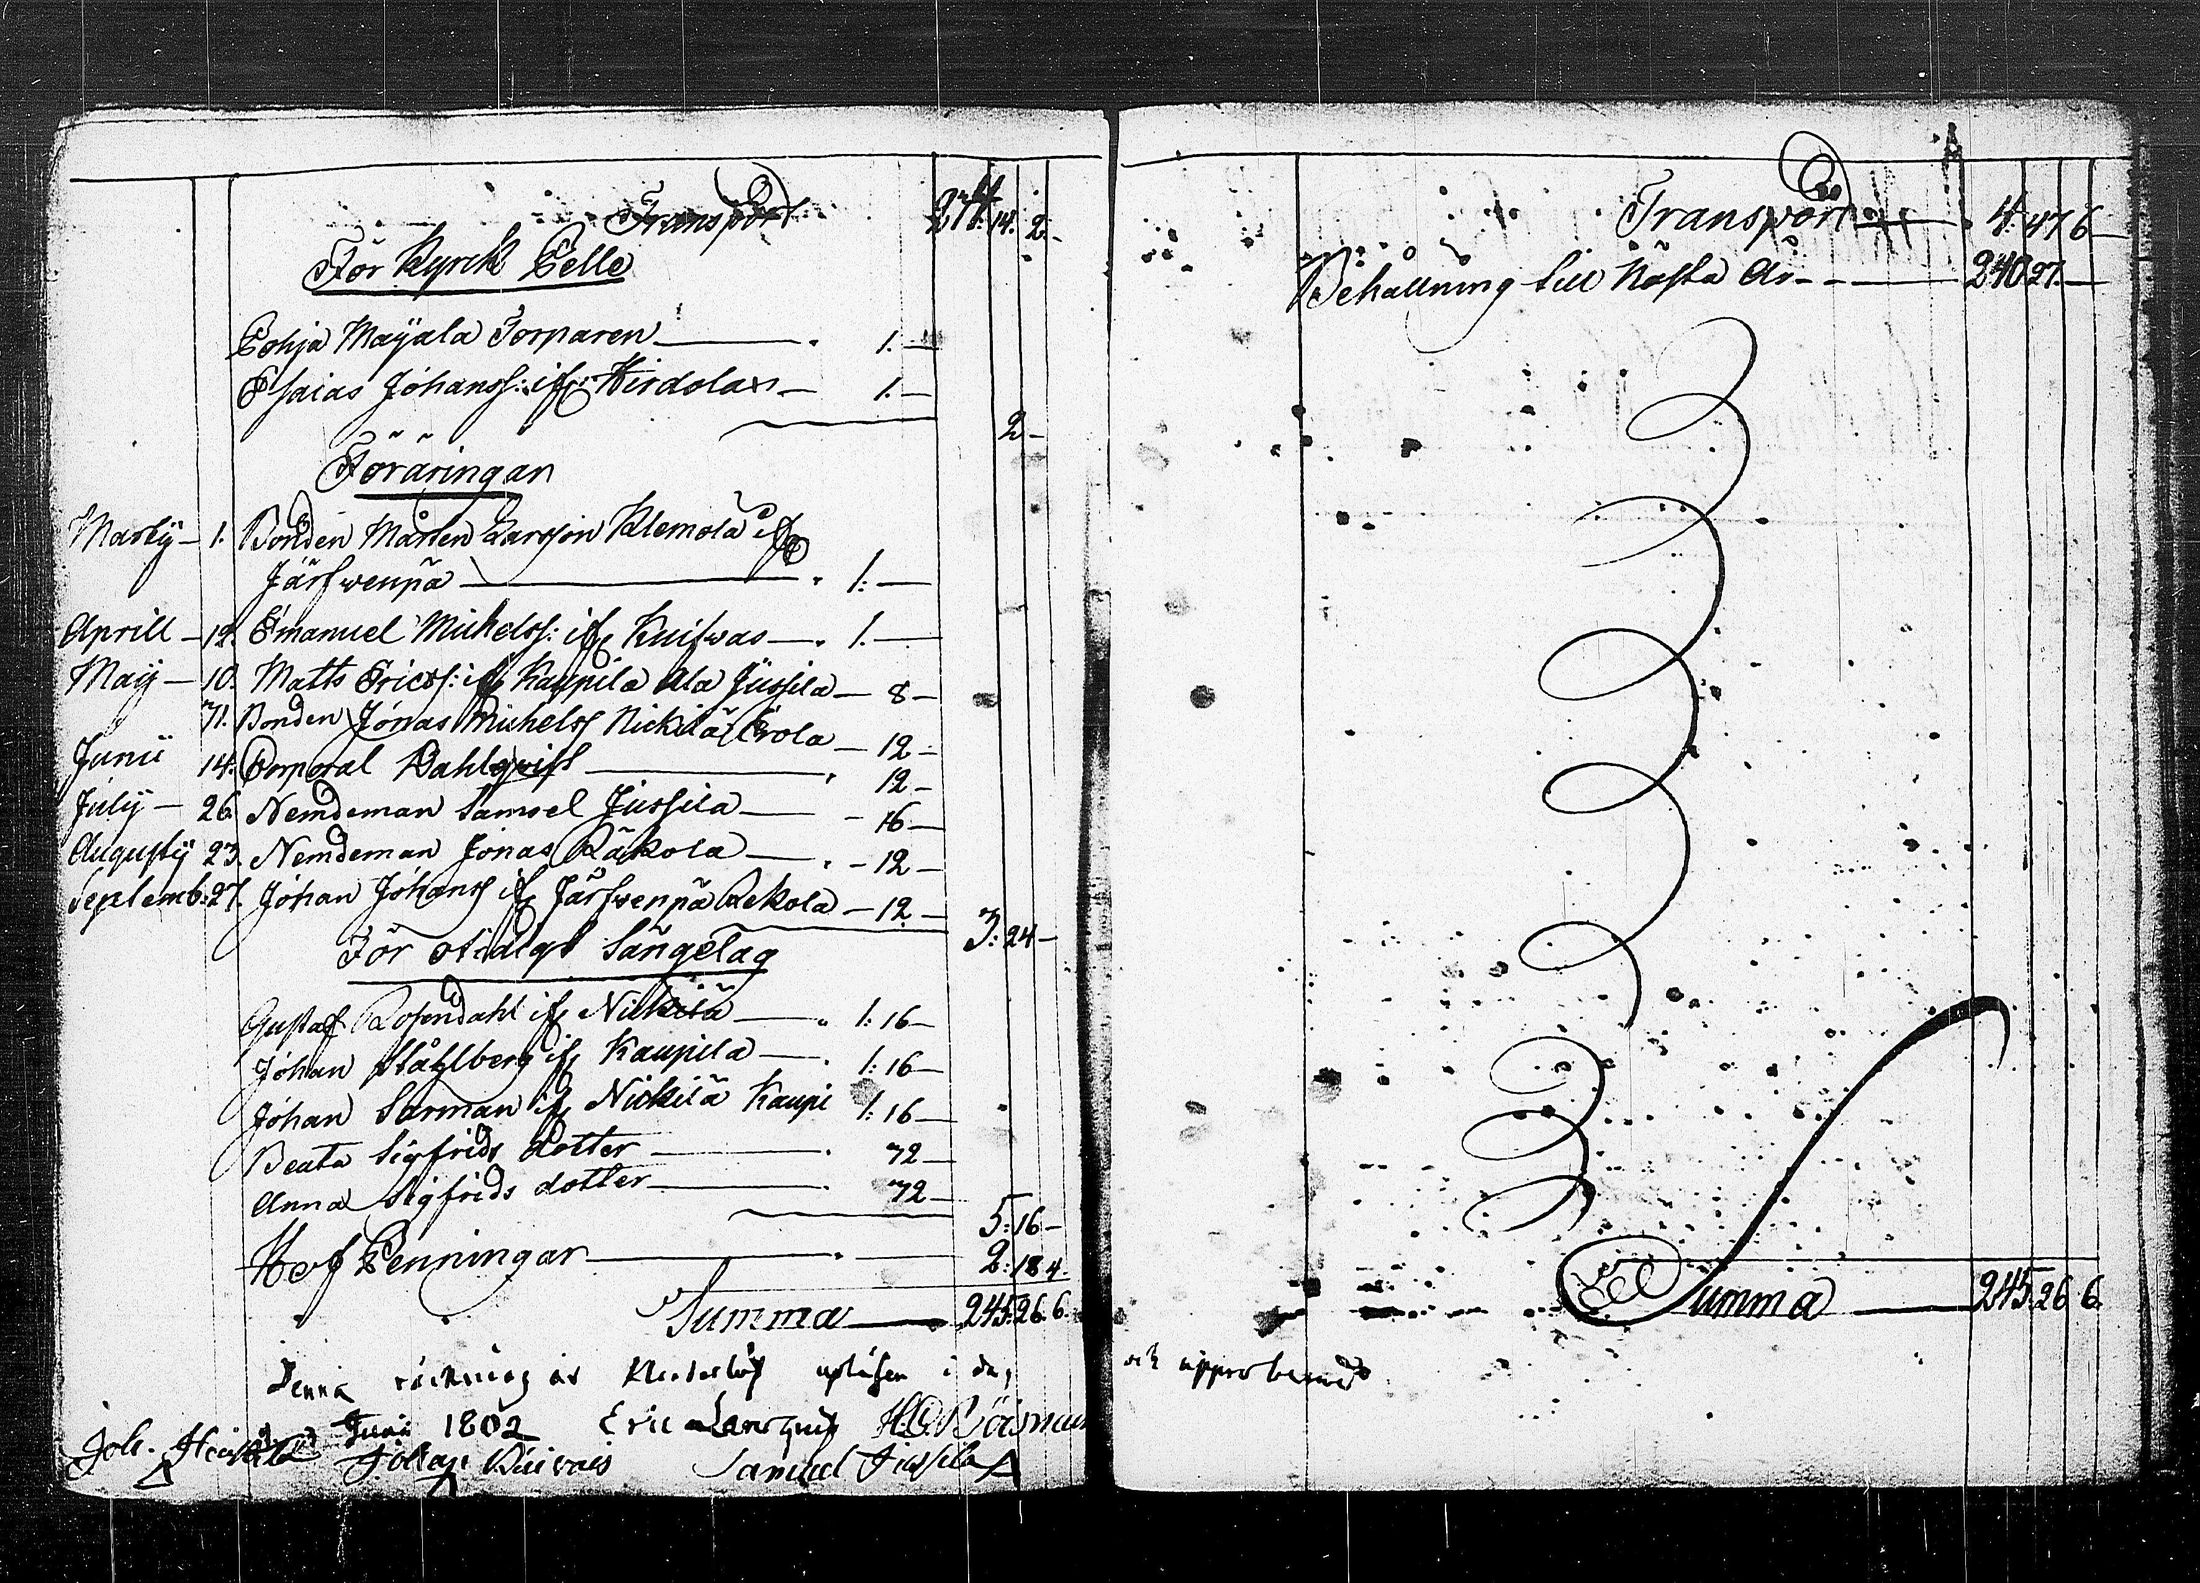 Transport 274. 14. 2.
För Kyrck Pelle
Pohja Mayala Torparen 1. —
Esaias Johanss: if: Hirdolax 1. —
2 —
Föräringar
Marty 1. Bonden Mårten Larsson Klemola if
Järfwenpä 1: —
Aprill 12. Emanuel Michelss: if Kuifwas 1. —
Maij 10. Matts Ericss: if Kaupila Ala Jussila 8 —
71. Bonden Jonas Michelss Nickilä Erola 12 —
Junii 14. Corporal Dahlqvist 12 —
July 26 Nemdeman Samoel Jussila 16 —
Augusty 23. Nemdeman Jonas Räkola 12 —
Septemb: 27. Johan Johanss if Järfwenpä Rekola 12 — 3: 24 —
För otidigt Sängelag
Gustaf Rosendahl if Nickilä 1: 16 —
Johan Ståhlberg if Kaupila 1: 16 —
Johan Sarman if Nickilä Kaupi 1: 16 —
Beata Sigfrids dotter 72 —
Anna Sigfrids dotter 72 —
5: 16 —
Hof Penningar 2: 18 4.
Summa 245: 26. 6.
Denna räckning är uplasen i dag
Junii 1802 Eric H:O:
Joh. Johan Samuel Jussila
Transport 4: 47 6
Behållning till Nästa År 240 27. —
Summa 245. 26 6.
och